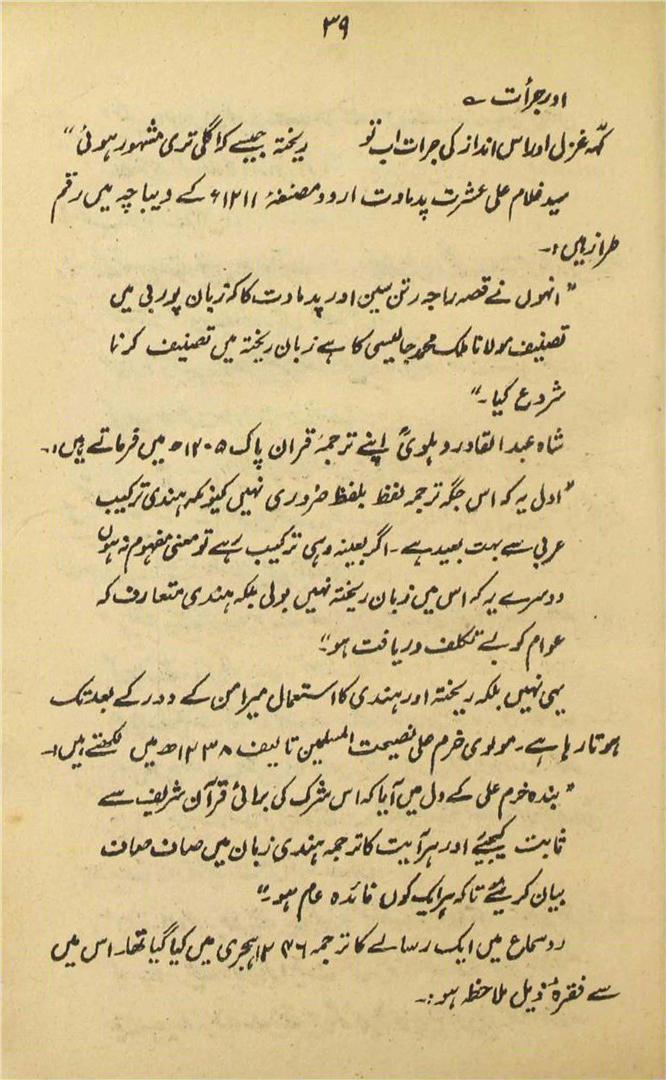 ۳۹
اور جرأت ؎
کہہ غزل اور اس انداز کی جرات اب تو ریختہ جیسے کہ اگلی تری مشہور ہوئی"
سید غلام علی عشرت پدماوت اردو مصنفۂ ۱۲۱۱ء کے دیباچہ میں رقم
طراز ہیں:۔
"انہوں نے قصہ راجہ رتن سین اور پدماوت کا کہ زبان پوربی میں
تصنیف مولانا ملک محمد جائیسی کا ہے زبان ریختہ میں تصنیف کرنا
شروع کیا۔"
شاہ عبدالقادر دہلویؒ اپنے ترجمۂ قران پاک ۱۲۰۵ھ میں فرماتے ہیں:۔
"اول یہ کہ اس جگہ ترجمہ لفظ بلفظ ضروری نہیں کیونکہ ہندی ترکیب
عربی سے بہت بعید ہے۔ اگر بعینہ وہی ترکیب رہے تو معنی مفہوم نہ ہوں
دوسرے یہ کہ اس میں زبان ریختہ نہیں بولی بلکہ ہندی متعارف کہ
عوام کو بے تکلف دریافت ہو۔"
یہی نہیں بلکہ ریختہ اور ہندی کا استعمال میرامن کے دور کے بعد تک
ہوتا رہا ہے۔ مولوی خرم علی نصیحت المسلمین تالیف ۱۲۳۸ھ میں لکھتے ہیں:۔
"بندہ خرم علی کے دل میں آیا کہ اس شرک کی برائی قرآن شریف سے
ثابت کیجیئے اور ہر آیت کا ترجمہ ہندی زبان میں صاف صاف
بیان کریئے تاکہ ہر ایک کوں فائدہ عام ہو۔"
رد سماع میں ایک رسالے کا ترجمہ ۱۲۴۶ ہجری میں کیا گیا تھا۔ اس میں
سے فقرۂ ذیل ملاحظہ ہو:۔